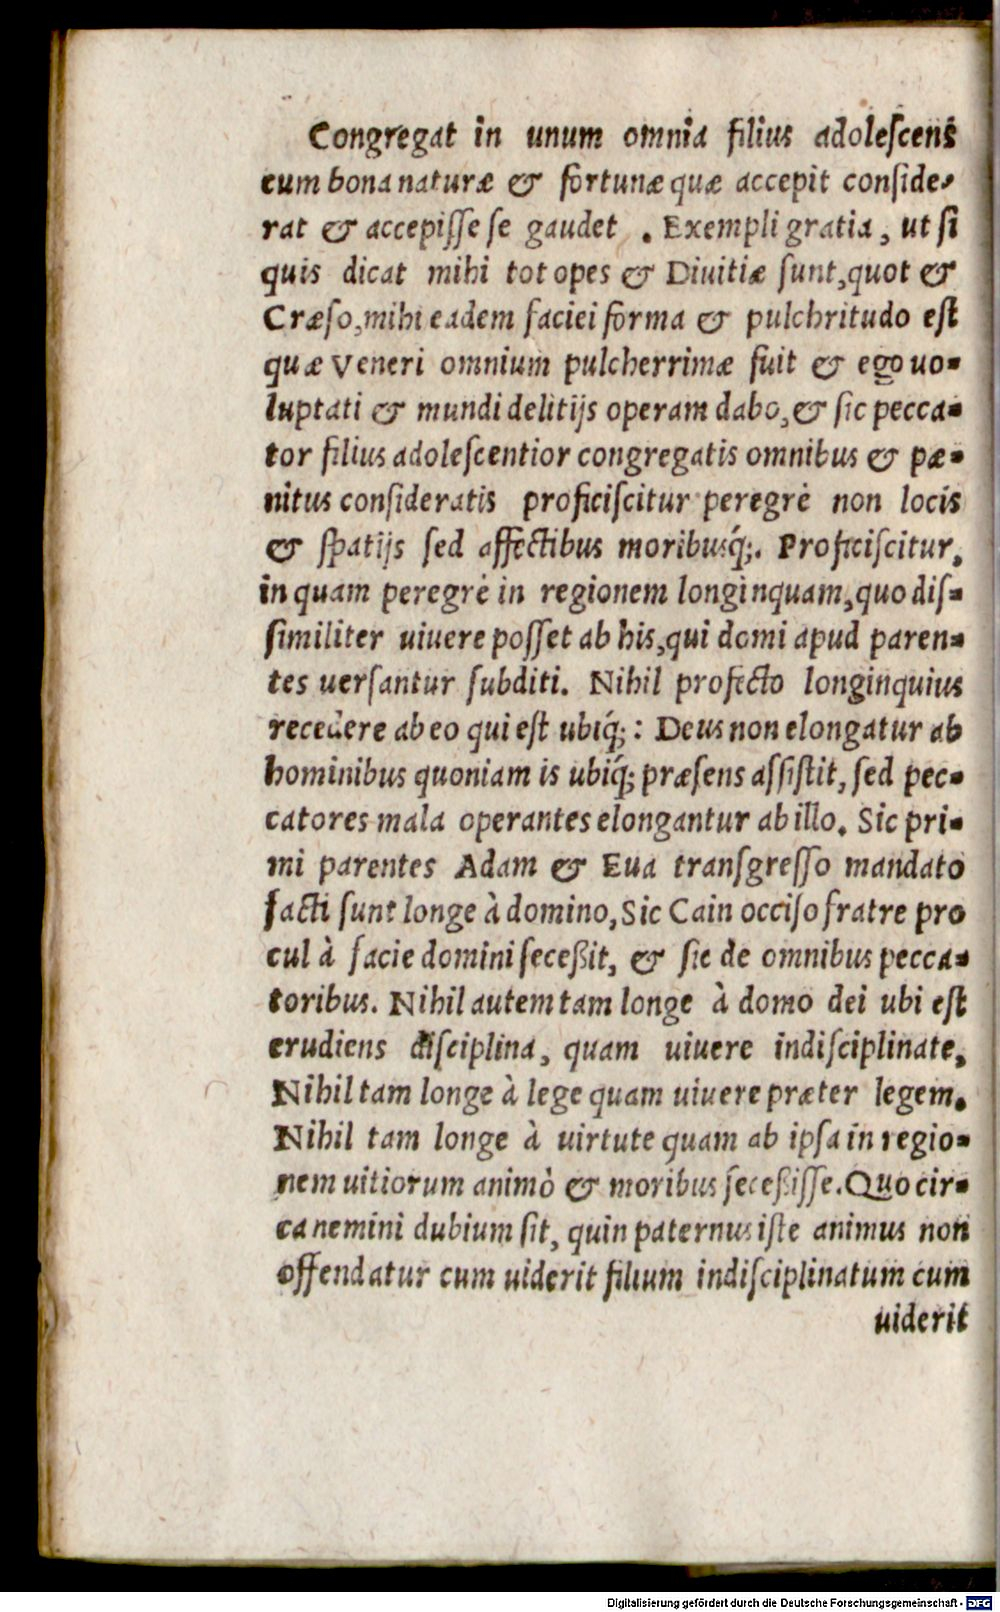 Congregat in unum omnia filius adoleſcens
cum bona naturæ & fortunæ quæ accepit conſide-
rat & accepiſſe ſe gaudet . Exempli gratia, ut ſi
quis dicat mihi tot opes & Diuitiæ ſunt, quot &
Cræſo, mihi eadem faciei forma & pulchritudo eſt
quæ Veneri omnium pulcherrimæ fuit & ego uo-
luptati & mundi delitijs operam dabo, & ſic pecca-
tor filius adoleſcentior congregatis omnibus & pæ-
nitus conſideratis proficiſcitur peregrè non locis
& ſpatijs ſed affectibus moribusq́;. Proficiſcitur,
in quam peregrè in regionem longinquam, quo diſ-
ſimiliter uiuere poſſet ab his, qui domi apud paren-
tes uerſantur ſubditi. Nihil profecto longinquius
recedere ab eo qui eſt ubiq́; : Deus non elongatur ab
hominibus quoniam is ubiq́; præſens aſſiſtit, ſed pec-
catores mala operantes elongantur ab illo. Sic pri-
mi parentes Adam & Eua tranſgreſſo mandato
facti ſunt longe à domino, Sic Cain occiſo fratre pro
cul à facie domini ſeceßit, & ſic de omnibus pecca-
toribus. Nihil autem tam longe à domo dei ubi eſt
erudiens diſciplina, quam uiuere indiſciplinate,
Nihil tam longe à lege quam uiuere præter legem.
Nihil tam longe à uirtute quam ab ipſa in regio-
nem uitiorum animò & moribus ſeceßiſſe. Quo cir-
ca nemini dubium ſit, quin paternus iſte animus non
offendatur cum uiderit filium indiſciplinatum cum
uiderit
Digitalisierung gefördert durch die Deutsche Forschungsgemeinschaft - DFG